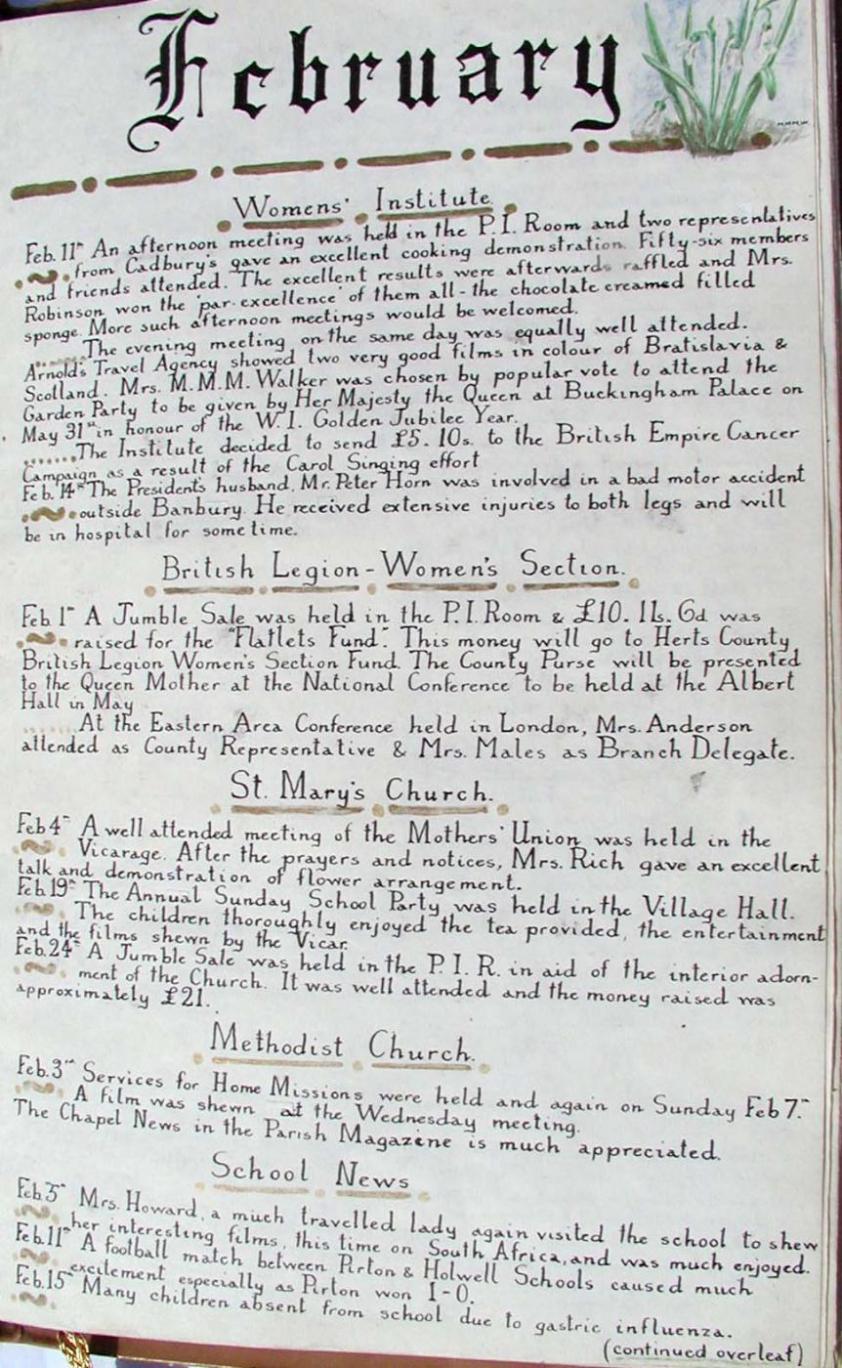 February
Womens' Institute.
Feb. 11th An afternoon meeting was held in the P.I. Room and two representatives
from Cadbury's gave an excellent cooking demonstration. Fifty-six members
and friends attended. The excellent results were afterwards raffled and Mrs.
Robinson won the 'par-excellence' of them all - the chocolate creamed filled
sponge. More such afternoon meetings would be welcomed.
......The evening meeting on the same day was equally well attended.
Arnold's Travel Agency showed two very good films in colour of Bratislavia &
Scotland. Mrs. M.M.M. Walker was chosen by popular vote to attend the
Garden Party to be given by Her Majesty the Queen at Buckingham Palace on
May 31st in honour of the W.I. Golden Jubilee Year.
.......The Institute decided to send £5. 10s. to the British Empire Cancer
Campaign as a result of the Carol Singing effort
Feb. 14th The President's husband, Mr. Peter Horn was involved in a bad motor accident
outside Banbury. He received extensive injuries to both legs and will
be in hospital for some time.
British Legion - Women's Section.
Feb 1st A Jumble Sale was held in the P.I. Room & £10. 11s. 6d was
raised for the "Flatlets Fund". This money will go to Herts County
British Legion Women's Section Fund. The County Purse will be presented
to the Queen Mother at the National Conference to be held at the Albert
Hall in May
......At the Eastern Area Conference held in London, Mrs. Anderson
attended as County Representative & Mrs. Males as Branch Delegate.
St. Mary's Church.
Feb 4th A well attended meeting of the Mothers' Union was held in the
Vicarage. After the prayers and notices, Mrs. Rich gave an excellent
talk and demonstration of flower arrangement.
Feb. 19th The Annual Sunday School Party was held in the Village Hall.
The children thoroughly enjoyed the tea provided, the entertainment
and the films shewn by the Vicar.
Feb. 24th A Jumble Sale was held in the P.I.R. in aid of the interior adorn-
ment of the Church. It was well attended and the money raised was
approximately £21.
Methodist Church.
Feb. 3rd Services for Home Missions were held and again on Sunday Feb 7th.
A film was shewn at the Wednesday meeting.
The Chapel News in the Parish Magazine is much appreciated.
School News
Feb. 5th Mrs. Howard, a much travelled lady again visited the school to shew
her interesting films, this time on South Africa, and was much enjoyed.
Feb. 11th A football match between Pirton & Holwell Schools caused much
excitement especially as Pirton won 1-0.
Feb. 15th Many children absent from school due to gastric influenza.
(continued overleaf)